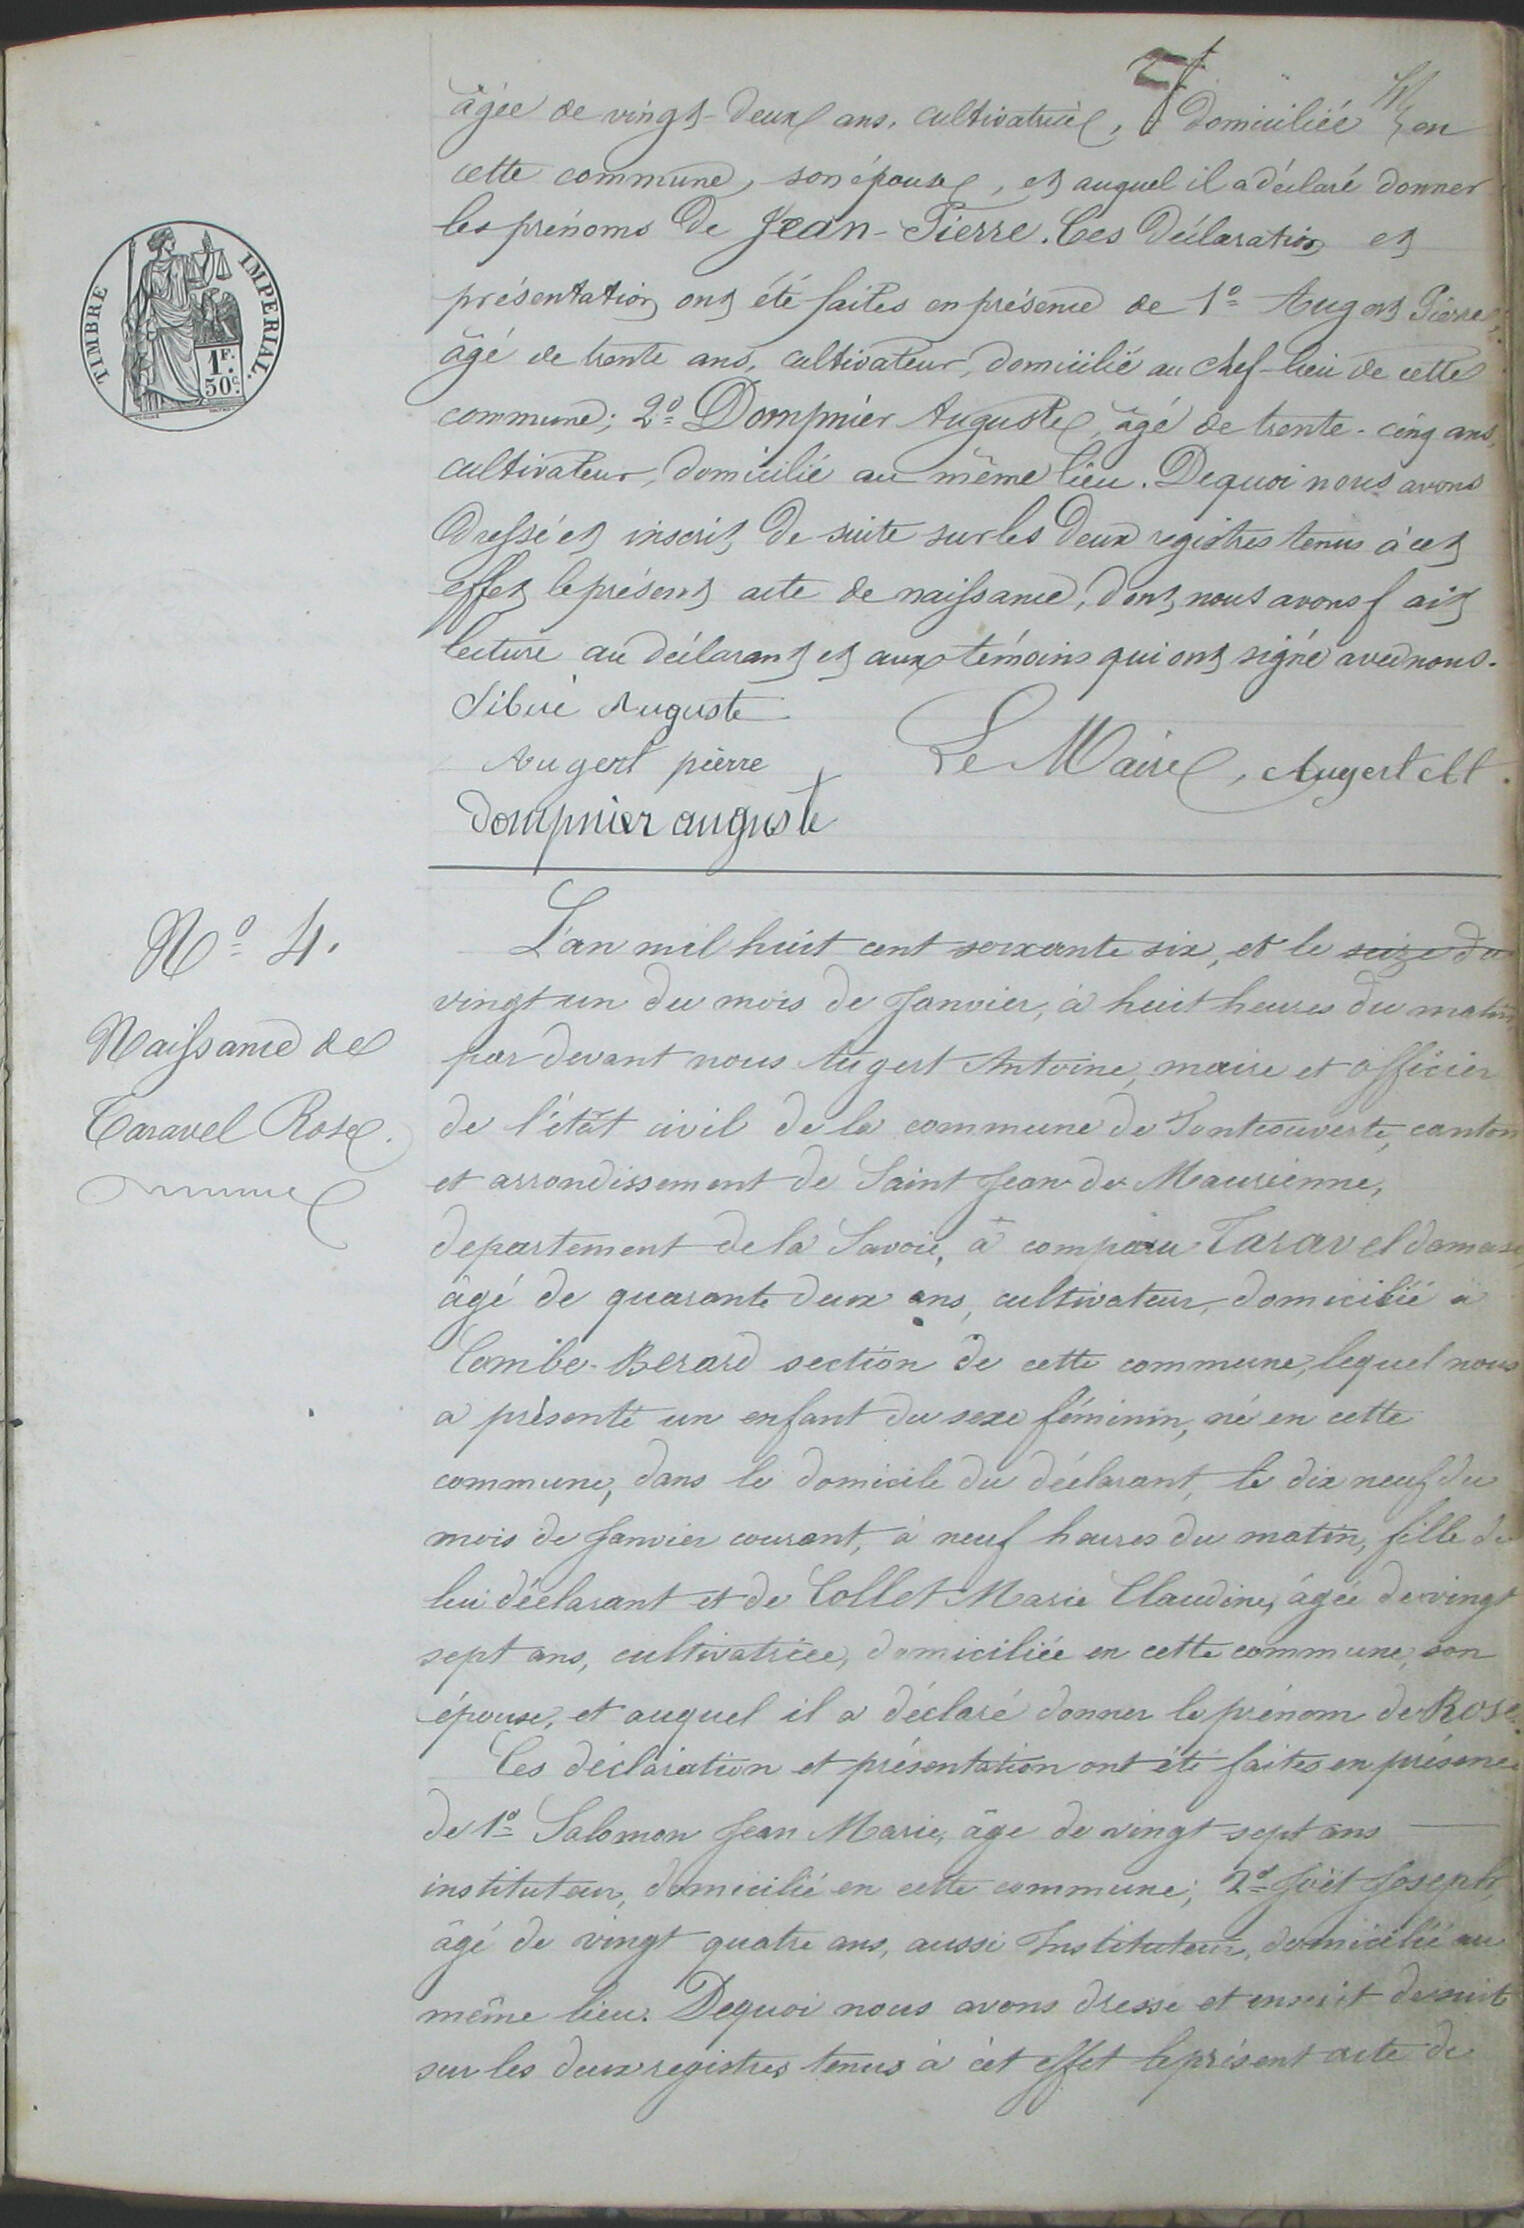 âgée de vingt-deux ans, cultivatrice, domiciliée en
cette commune, son épouse, et auquel il a déclaré donner
les prénoms de Jean-Pierre. Ces déclaration et
présentation ont été faites en présence de 1º Augert Pierre,
âgé de trente ans, cultivateur, domicilié au chef-lieu de cette
commune; 2º Dompnier Auguste, âgé de trente-cinq ans,
cultivateur, domicilié au même lieu. De quoi nous avons
dressé et inscrit de suite sur les deux registres tenus à cet
effet le présent acte de naissance, dont nous avons fait
lecture au déclarant et aux témoins qui ont signé avec nous.
Sibué Auguste
Augert pierre
Le Maire, Augert Ant.
dompnier auguste
TIMBRE IMPERIAL.
1F.
50c.
Nº 4.
Naissance de
Taravel Rose.
L'an mil huit cent soixante six, et le seize du
vingt un du mois de Janvier, à huit heures du matin
par devant nous Augert Antoine, maire et officier
de l'état civil de la commune de Fontcouverte, canton
et arrondissement de Saint Jean de Maurienne,
departement de la Savoie, à comparu Taravel damase,
âgé de quarante deux ans, cultivateur, domicilié à
Combe-Berard section de cette commune, lequel nous
a présenté un enfant du sexe féminin, né en cette
commune, dans le domicile du déclarant, le dix neuf du
mois de Janvier courant, à neuf heures du matin, fille de
lui déclarant et de Collet Marie Claudine, âgée de vingt
sept ans, cultivatrice, domiciliée en cette commune, son
épouse, et auquel il a déclaré donner le prénom de Rose.
Ces déclaration et présentation ont été faites en présence
de 1º Salomon Jean Marie, âge de vingt sept ans
instituteur, domicilié en cette commune; 2º Joët Joseph,
âgé de vingt quatre ans, aussi Instituteur, domicilié au
même lieu. De quoi nous avons dressé et inscrit de suit
sur les deux registres tenus à cet effet le présent acte de